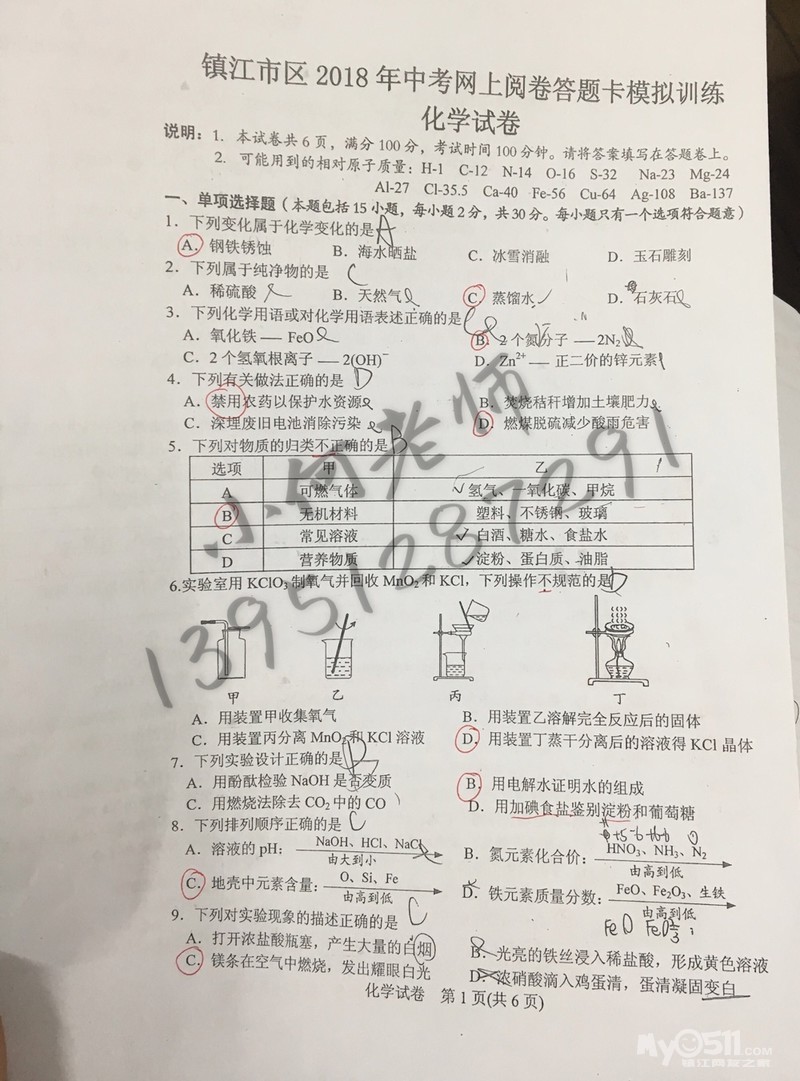 镇江市区 2018 年中考网上阅卷答题卡模拟训练
化学试卷
说明：1. 本试卷共 6 页，满分 100 分，考试时间 100 分钟。请将答案填写在答题卷上。
2. 可能用到的相对原子质量：H-1 C-12 N-14 O-16 S-32 Na-23 Mg-24
Al-27 Cl-35.5 Ca-40 Fe-56 Cu-64 Ag-108 Ba-137
一、单项选择题（本题包括 15 小题，每小题 2 分，共 30 分。每小题只有一个选项符合题意）
1．下列变化属于化学变化的是 A
A．钢铁锈蚀 B．海水晒盐 C．冰雪消融 D．玉石雕刻
2．下列属于纯净物的是 C
A．稀硫酸 B．天然气 C．蒸馏水 D．石灰石
3．下列化学用语或对化学用语表述正确的是
A．氧化铁 — FeO B．2 个氮分子 — 2N₂
C．2 个氢氧根离子 — 2(OH)⁻ D．Zn²⁺ — 正二价的锌元素
4．下列有关做法正确的是 D
A．禁用农药以保护水资源 B．焚烧秸秆增加土壤肥力
C．深埋废旧电池消除污染 D．燃煤脱硫减少酸雨危害
5．下列对物质的归类不正确的是 B
选项 甲 乙
A 可燃气体 氢气、一氧化碳、甲烷
B 无机材料 塑料、不锈钢、玻璃
C 常见溶液 白酒、糖水、食盐水
D 营养物质 淀粉、蛋白质、油脂
小何老师
13951287291
6.实验室用 KClO₃ 制氧气并回收 MnO₂ 和 KCl，下列操作不规范的是 D
甲 乙 丙 丁
A．用装置甲收集氧气 B．用装置乙溶解完全反应后的固体
C．用装置丙分离 MnO₂ 和 KCl 溶液 D．用装置丁蒸干分离后的溶液得 KCl 晶体
7．下列实验设计正确的是 B
A．用酚酞检验 NaOH 是否变质 B．用电解水证明水的组成
C．用燃烧法除去 CO₂ 中的 CO D．用加碘食盐鉴别淀粉和葡萄糖
8．下列排列顺序正确的是 C
A．溶液的 pH： NaOH、HCl、NaCl 由大到小 B．氮元素化合价： HNO₃、NH₃、N₂ 由高到低
C．地壳中元素含量： O、Si、Fe 由高到低 D．铁元素质量分数： FeO、Fe₂O₃、生铁 由高到低
9．下列对实验现象的描述正确的是 C
A．打开浓盐酸瓶塞，产生大量的白烟 B．光亮的铁丝浸入稀盐酸，形成黄色溶液
C．镁条在空气中燃烧，发出耀眼白光 D．浓硝酸滴入鸡蛋清，蛋清凝固变白
化学试卷 第 1 页(共 6 页)
My0511.COM
镇江网友之家